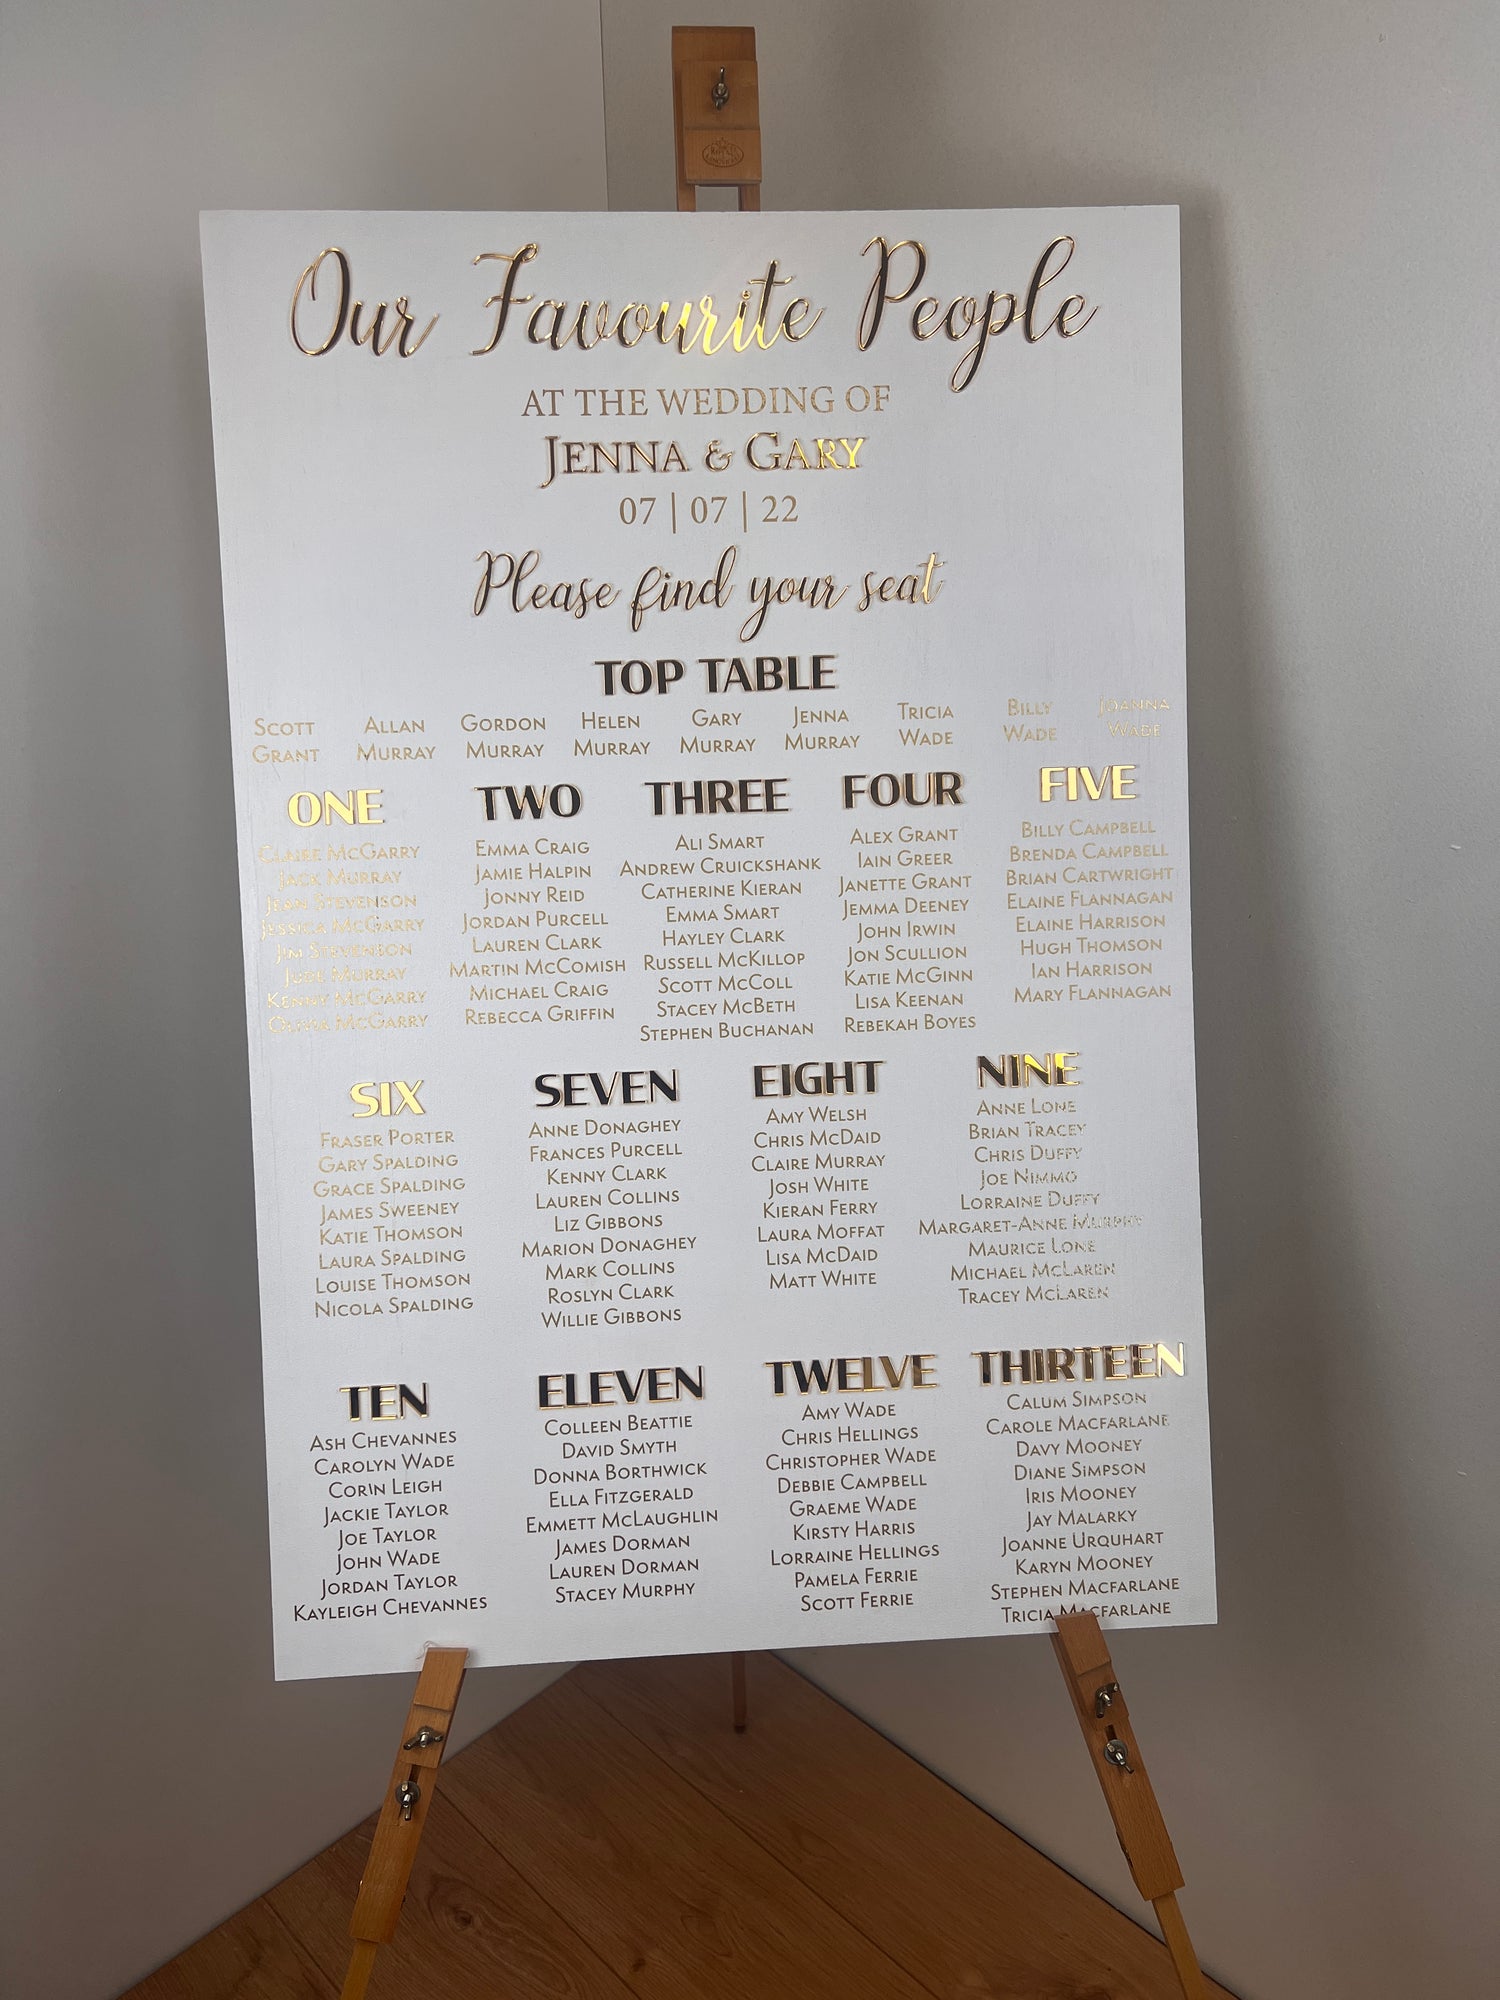 Our Favourite People
AT THE WEDDING OF
JENNA & GARY
07 | 07 | 22
Please find your seat
TOP TABLE
SCOTT GRANT
ALLAN MURRAY
GORDON MURRAY
HELEN MURRAY
GARY MURRAY
JENNA MURRAY
TRICIA WADE
BILLY WADE
JOANNA WADE
ONE
CLAIRE MCGARRY
JACK MURRAY
JEAN STEVENSON
JESSICA MCGARRY
JIM STEVENSON
JUDE MURRAY
KENNY MCGARRY
OLIVIA MCGARRY
TWO
EMMA CRAIG
JAMIE HALPIN
JONNY REID
JORDAN PURCELL
LAUREN CLARK
MARTIN MCCOMISH
MICHAEL CRAIG
REBECCA GRIFFIN
THREE
ALI SMART
ANDREW CRUICKSHANK
CATHERINE KIERAN
EMMA SMART
HAYLEY CLARK
RUSSELL MCKILLOP
SCOTT MCCOLL
STACEY MCBETH
STEPHEN BUCHANAN
FOUR
ALEX GRANT
IAIN GREER
JANETTE GRANT
JEMMA DEENEY
JOHN IRWIN
JON SCULLION
KATIE MCGINN
LISA KEENAN
REBEKAH BOYES
FIVE
BILLY CAMPBELL
BRENDA CAMPBELL
BRIAN CARTWRIGHT
ELAINE FLANNAGAN
ELAINE HARRISON
HUGH THOMSON
IAN HARRISON
MARY FLANNAGAN
SIX
FRASER PORTER
GARY SPALDING
GRACE SPALDING
JAMES SWEENEY
KATIE THOMSON
LAURA SPALDING
LOUISE THOMSON
NICOLA SPALDING
SEVEN
ANNE DONAGHEY
FRANCES PURCELL
KENNY CLARK
LAUREN COLLINS
LIZ GIBBONS
MARION DONAGHEY
MARK COLLINS
ROSLYN CLARK
WILLIE GIBBONS
EIGHT
AMY WELSH
CHRIS MCDAID
CLAIRE MURRAY
JOSH WHITE
KIERAN FERRY
LAURA MOFFAT
LISA MCDAID
MATT WHITE
NINE
ANNE LONE
BRIAN TRACEY
CHRIS DUFFY
JOE NIMMO
LORRAINE DUFFY
MARGARET-ANNE MURPHY
MAURICE LONE
MICHAEL MCLAREN
TRACEY MCLAREN
TEN
ASH CHEVANNES
CAROLYN WADE
CORIN LEIGH
JACKIE TAYLOR
JOE TAYLOR
JOHN WADE
JORDAN TAYLOR
KAYLEIGH CHEVANNES
ELEVEN
COLLEEN BEATTIE
DAVID SMYTH
DONNA BORTHWICK
ELLA FITZGERALD
EMMETT MCLAUGHLIN
JAMES DORMAN
LAUREN DORMAN
STACEY MURPHY
TWELVE
AMY WADE
CHRIS HELLINGS
CHRISTOPHER WADE
DEBBIE CAMPBELL
GRAEME WADE
KIRSTY HARRIS
LORRAINE HELLINGS
PAMELA FERRIE
SCOTT FERRIE
THIRTEEN
CALUM SIMPSON
CAROLE MACFARLANE
DAVY MOONEY
DIANE SIMPSON
IRIS MOONEY
JAY MALARKY
JOANNE URQUHART
KARYN MOONEY
STEPHEN MACFARLANE
TRICIA MACFARLANE